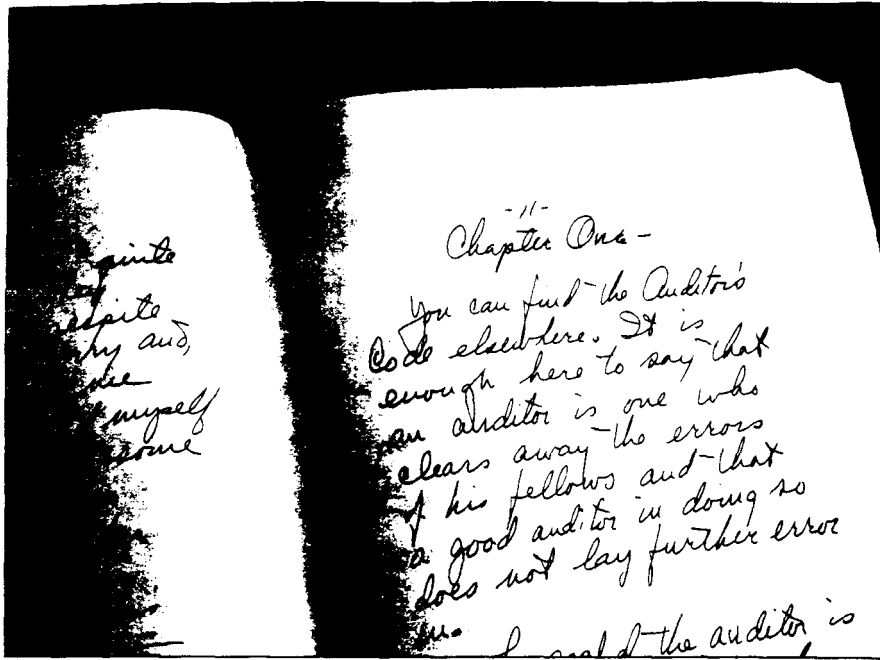 despite
ry and,
me
myself
some
-11-
Chapter One-
You can find the Auditor's
Code elsewhere. It is
enough here to say that
an auditor is one who
clears away the errors
of his fellows and that
a good auditor in doing so
does not lay further error
in.
goal of the auditor is